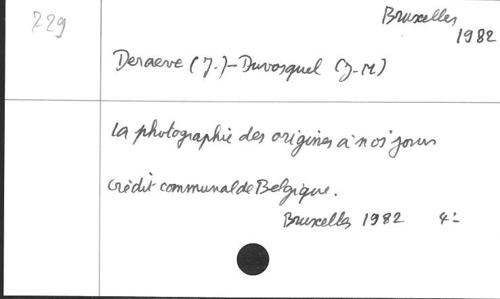 729
Bruxelles
1982
Deraeve (J.) - Duvosquel (J-M)
La photographie des origines à nos jours
Crédit communal de Belgique.
Bruxelles 1982 4°